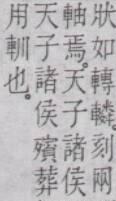 狀如轉轔。刻兩
軸焉。天子諸侯
天子諸侯殯葬
用輁也。